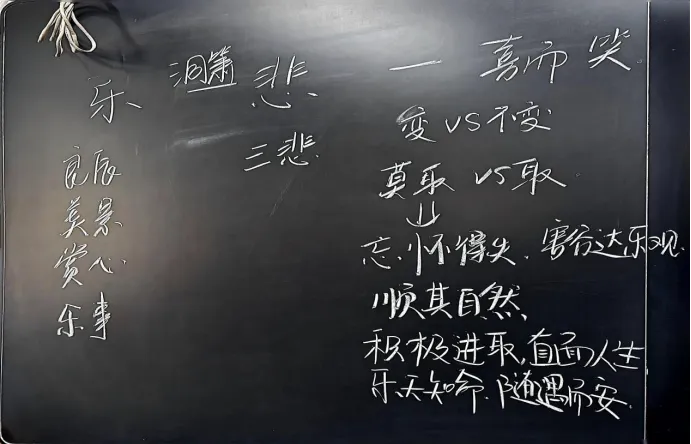 乐 洞箫 悲、 — 喜而笑
良辰
美景
赏心
乐事
三悲.
变 VS 不变
莫取 VS 取
↓
忘.怀得失、豁达乐观.
顺其自然、
积极进取,直面人生
乐天知命.随遇而安.